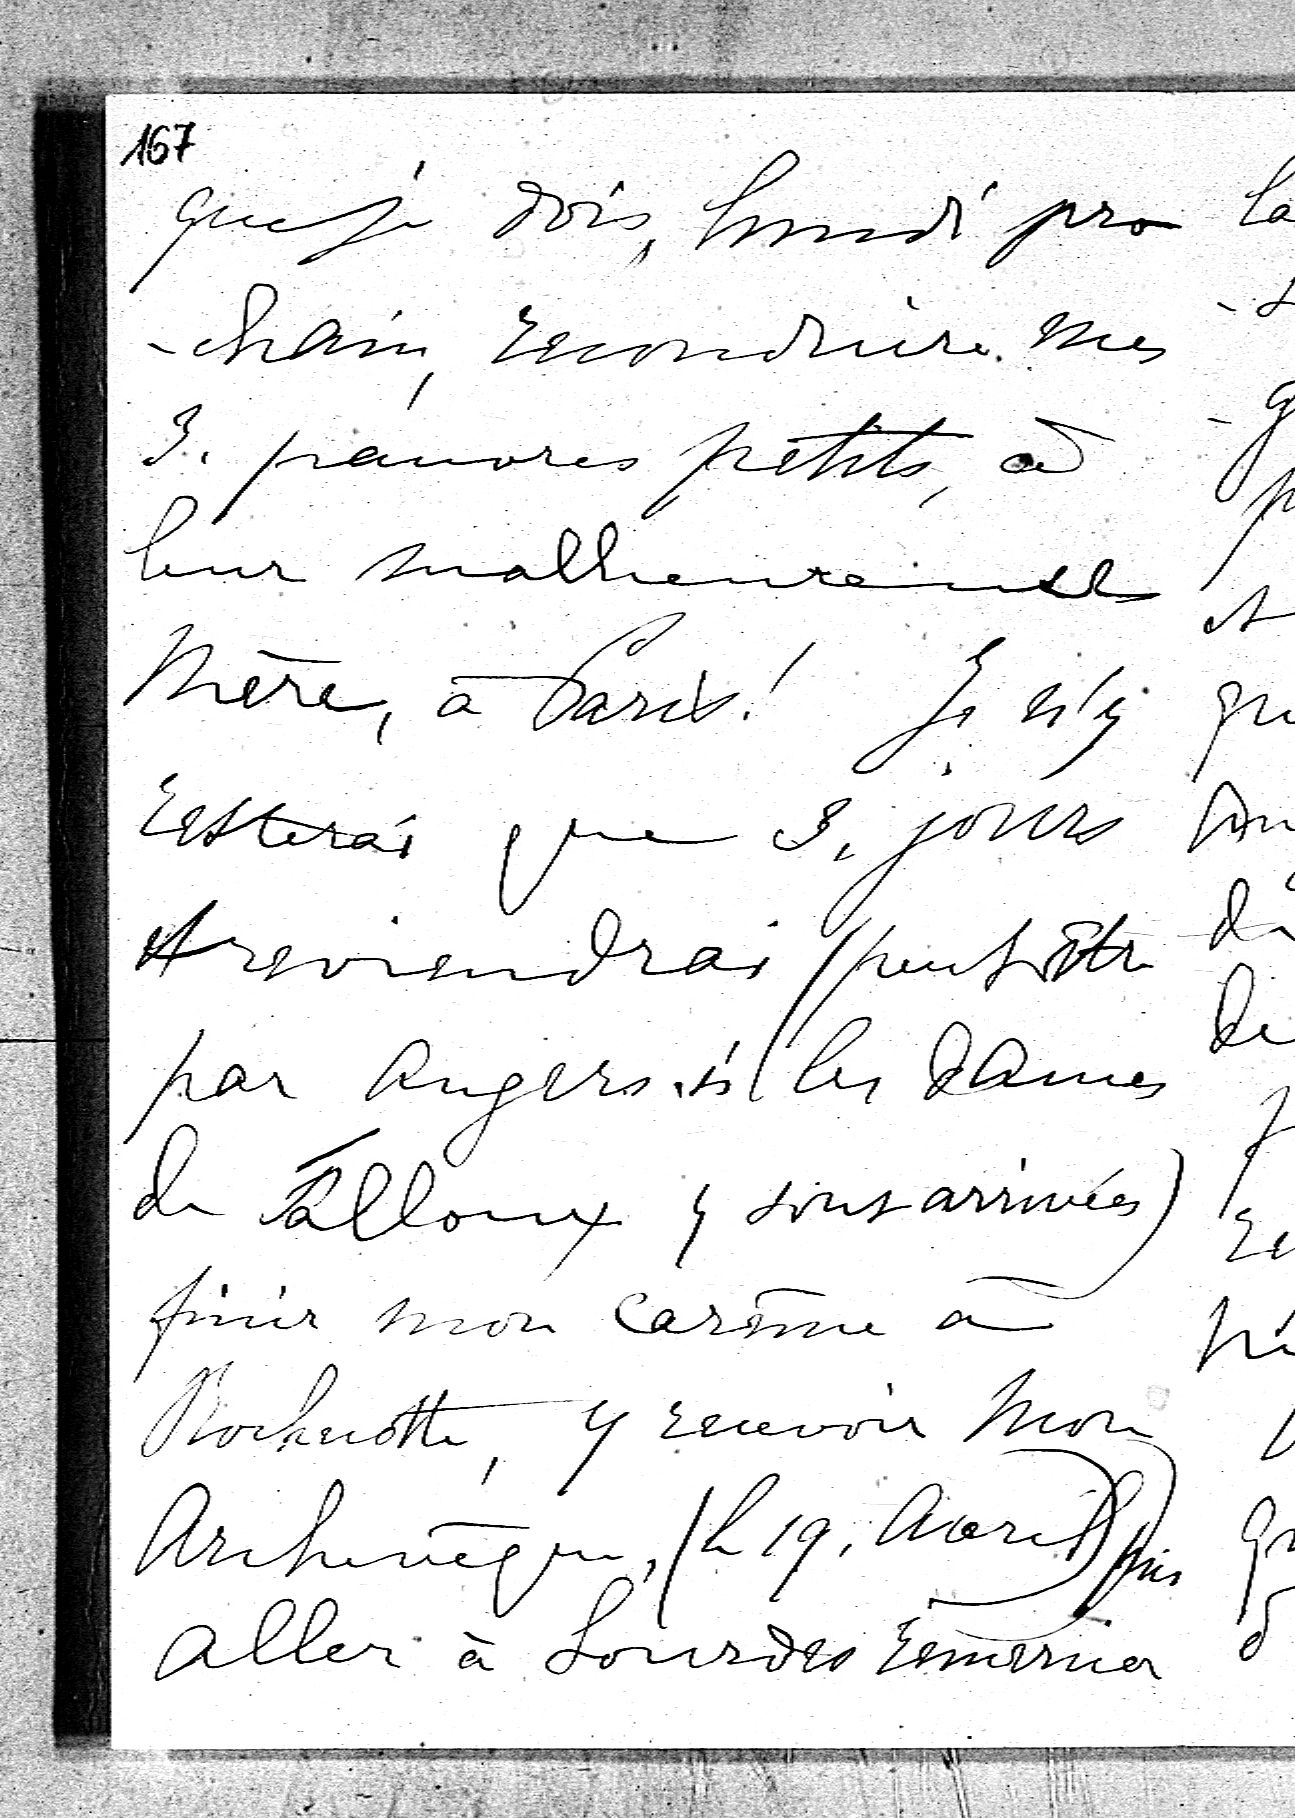 167
que je dois, lundi pro
-chain, reconduire mes
3. pauvres petits, à
leur malheureuse
Mère, à Paris! Je n'y
resterai que 3. jours
et reviendrai (peut être
par Angers si les dames
de Falloux y sont arrivées)
finir mon carême à
Rochecotte, y recevoir mon
Archevêque, (le 19. Avril) puis
aller à Lourdes remercier